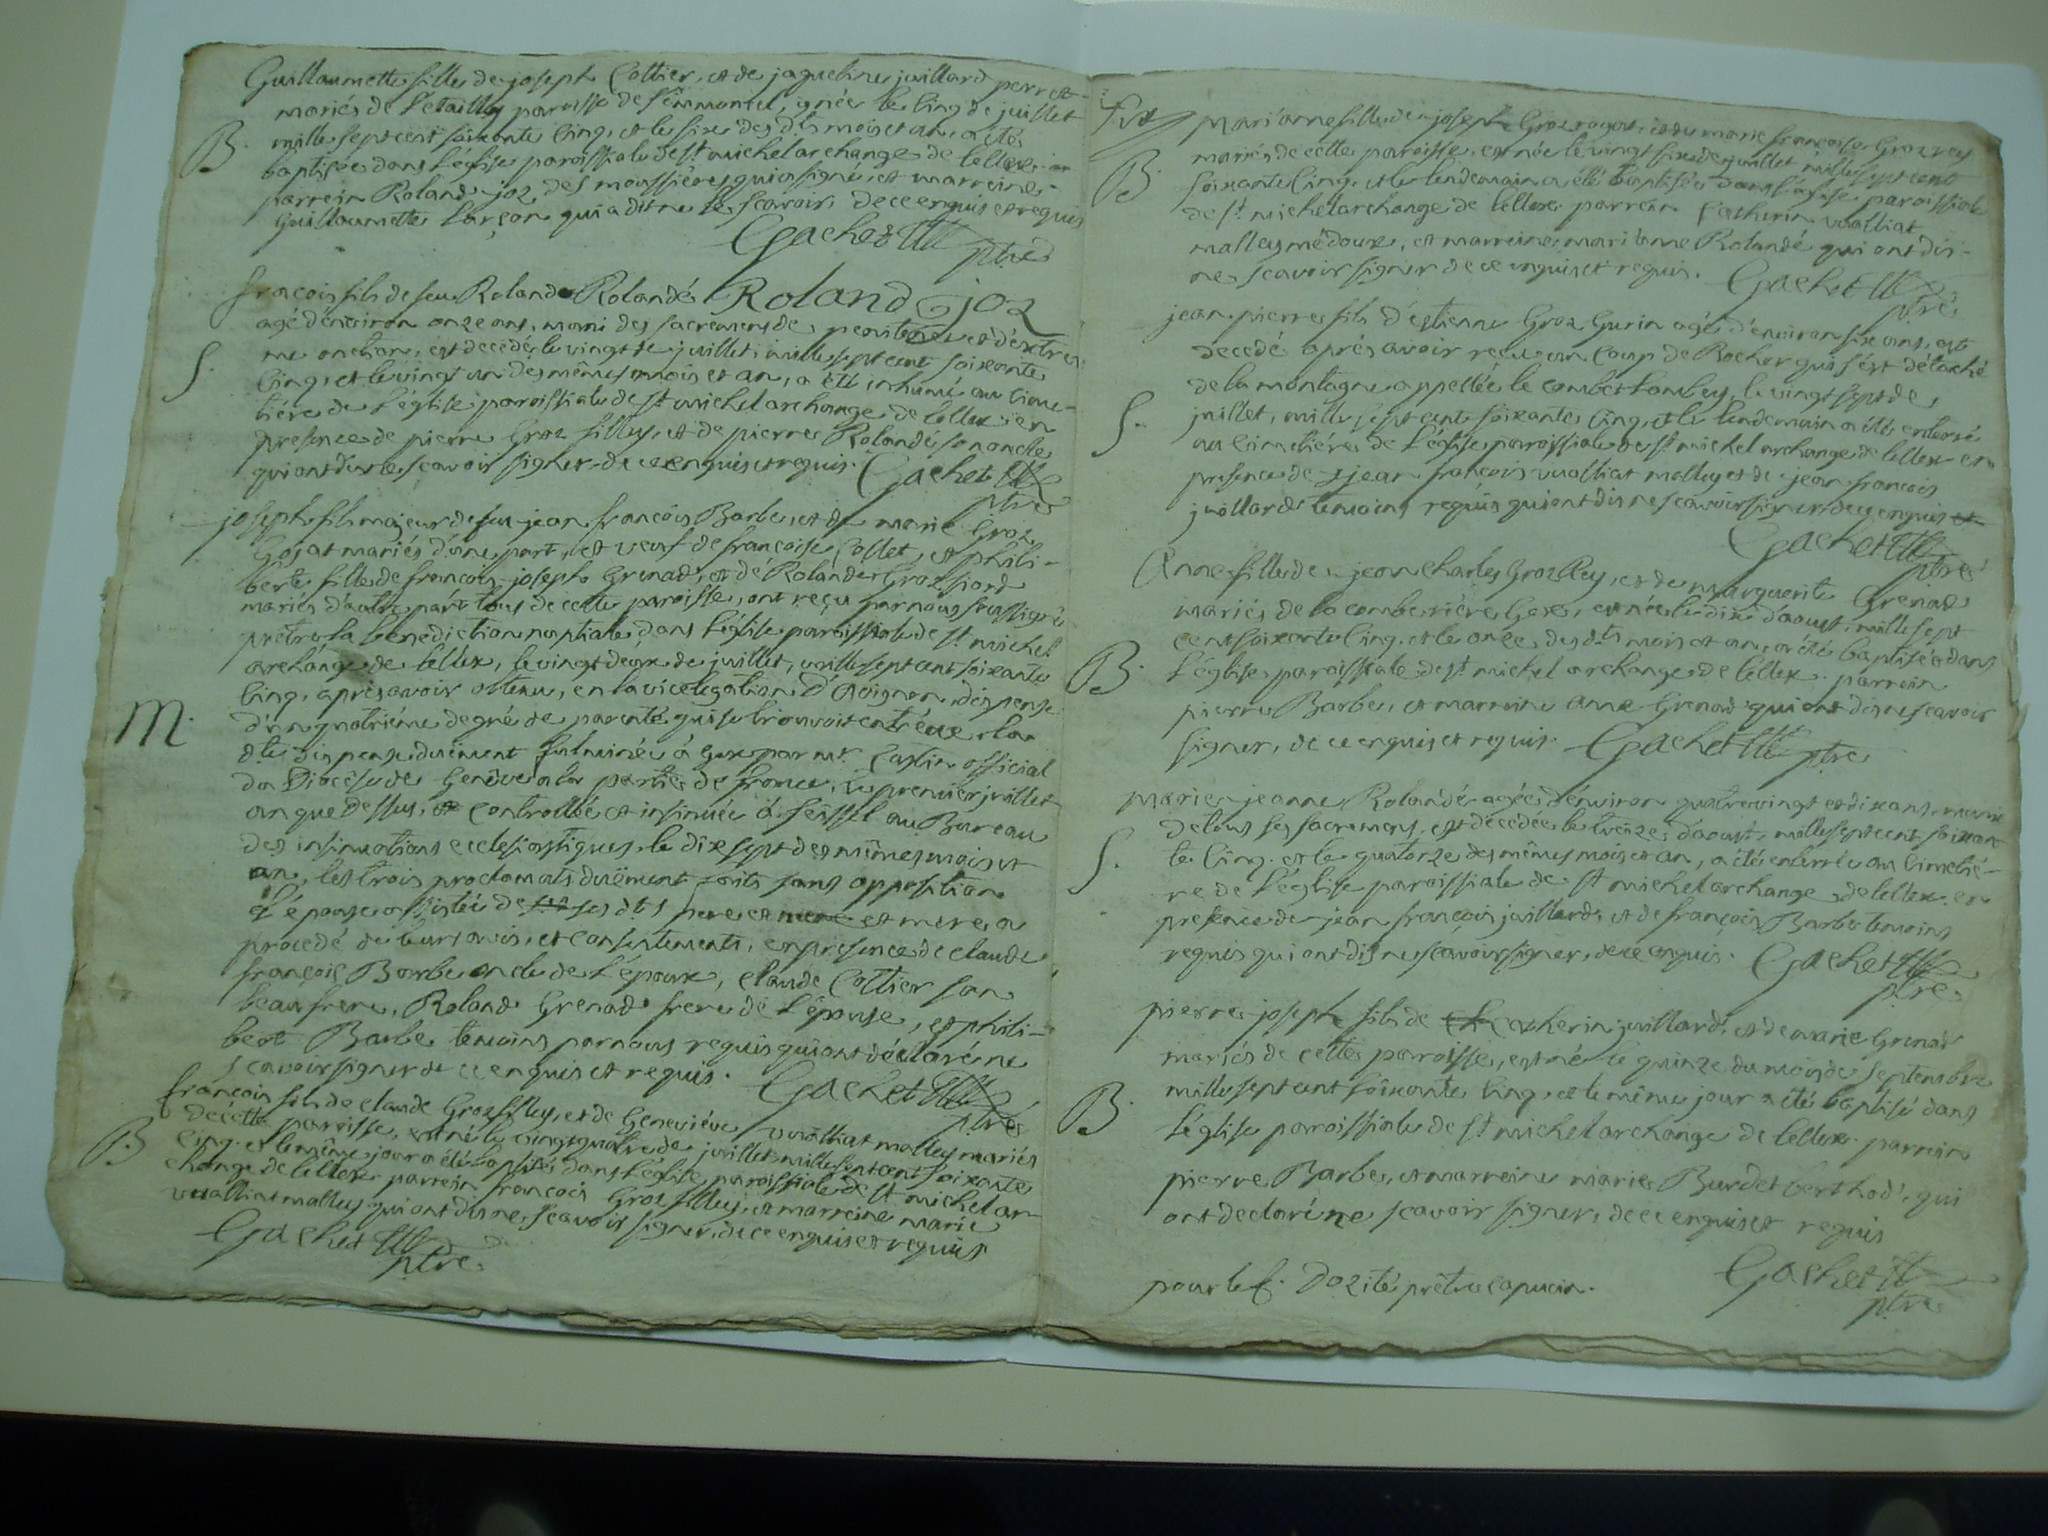 Guillaumette fille de joseph Cottier, et de jaqueline juillard perret
mariés de paroisse de Sêmmoncel, née le cinq de juillet
mille sept cent soixante cinq, et le six des dts mois et an, a été
B. baptisée dans l'église paroissiale de st michel archange de lellex.
parrein Roland joz des moussières qui a signé, et marreine
Guillaumette Lançon qui a dit ne le scavoir de ce enquis et requis
Gachet ptre
françois fils de feu Roland Rolandé Roland joz
agé d'environ onze ans, muni des sacremens de penitence et d'extrê
me onction, est decedé le vingt de juillet mille sept cent soixante
S. cinq, et le vingt un des mêmes mois et an, a été inhumé au cime-
tière de l'église paroissiale de st michel archange de lellex en
presence de pierre Groz fillex, et de pierre Rolandé son oncle
qui ont dit ne scavoir signer de ce enquis et requis. Gachet
ptre
joseph fils majeur de feu jean françois Barbe, et de marie Groz
Gojat mariés d'une part, et veuf de françoise Collet, et phili-
berte fille de françois joseph Grenad, et de Rolande Groz
mariés d'autre part tous de cette paroisse, ont reçu par nous soussigné
prêtre la benediction nuptiale dans l'église paroissiale de st michel
archange de lellex, le vingt deux de juillet, mille sept cent soixante
cinq, après avoir obtenu, en la vicelegation d'Avignon, dispense
M. d'un quatrième degré de parenté qui se trouvoit entr'eux, la
dte dispense duëment fulminée à Gex par mr Castin official
du Diocèse de Genève a la partie de france, le premier juillet
an que dessus, et controllée et insinuée à seissel au Bureau
des insinuations ecclesiastiques le dix sept des mêmes mois et
an, les trois proclamats duëment faits sans opposition
l'épouse assistée de ses dts pere et mere, a
procedé de leurs avis, et consentements, en presence de claude
françois Barbe oncle de l'époux, claude Cottier son
beaufrere, Roland Grenad frere de l'épouse, et phili-
bert Barbe temoins par nous requis qui ont déclaré ne
scavoir signer de ce enquis et requis. Gachet
ptre
françois fils de claude Groz fillex, et de Geneviève vuaillat malley mariés
de cette paroisse, est né le vingt quatre de juillet mille sept cent soixante
B cinq et le même jour a été baptisé dans l'église paroissiale de st michel ar-
change de lellex parrein françois Groz fillex, et marreine marie
vuaillat malley qui ont dit ne scavoir signer, de ce enquis et requis
Gachet
ptre.
mari'anne fille de joseph Groz et de marie françoise Groz rey
mariés de cette paroisse, est née le vingt six de juillet mille sept cent
B soixante cinq, et le lendemain a été baptisée dans l'église paroissiale
de st michel archange de lellex. parrein Catherin vuaillat
malley médoux, et marreine mari'anne Rolandé qui ont dit
ne scavoir signer de ce enquis et requis. Gachet
ptre
jean pierre fils d'estienne Groz Gurin agé d'environ six ans, est
decedé après avoir reçu un coup de Rocher qui s'est détaché
de la montagne appellée le le vingt sept de
S. juillet, mille sept cent soixante cinq, et le lendemain a été enterré
au cimetière de l'église paroissiale de st michel archange de lellex en
presence de jean françois vuaillat malley et de jean françois
juillard temoins requis qui ont dit ne scavoir signer, de ce enquis
Gachet
ptre
Anne fille de jean charles Groz Rey, et de marguerite Grenad
mariés de la combe est née le dix d'aoust, mille sept
cent soixante cinq, et le onze des dts mois et an, a été baptisée dans
B. l'église paroissiale de st michel archange de lellex. parrein
pierre Barbe, et marreine anne Grenad qui ont dit ne scavoir
signer, de ce enquis et requis. Gachet ptre
marie jeanne Rolandé agée d'environ quatre vingt et dix ans, munie
de tous les sacremens, est décédée le treize d'aoust, mille sept cent soixan
S. te cinq. et le quatorze des mêmes mois et an, a été enterrée au cimetiè-
re de l'église paroissiale de st michel archange de lellex. en
presence de jean françois juillard, et de françois Barbe temoins
requis qui ont dit ne scavoir signer, de ce enquis. Gachet
ptre.
pierre joseph fils de catherin juillard, et de marie Grenad
mariés de cette paroisse, est né le quinze du mois de septembre
mille sept cent soixante cinq, et le même jour a été baptisé dans
B. l'église paroissiale de st michel archange de lellex. parrein
pierre Barbe, et marreine marie Burdet berthod, qui
ont declaré ne scavoir signer, de ce enquis et requis
Gachet
pour le prêtre capucin. ptre